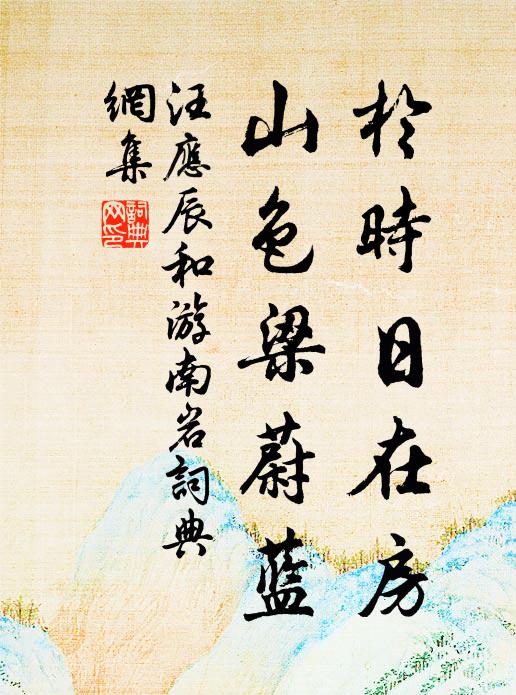 於時日在房
山色梁蔚藍
汪應辰和游南岩詞典
網集
詞典網印